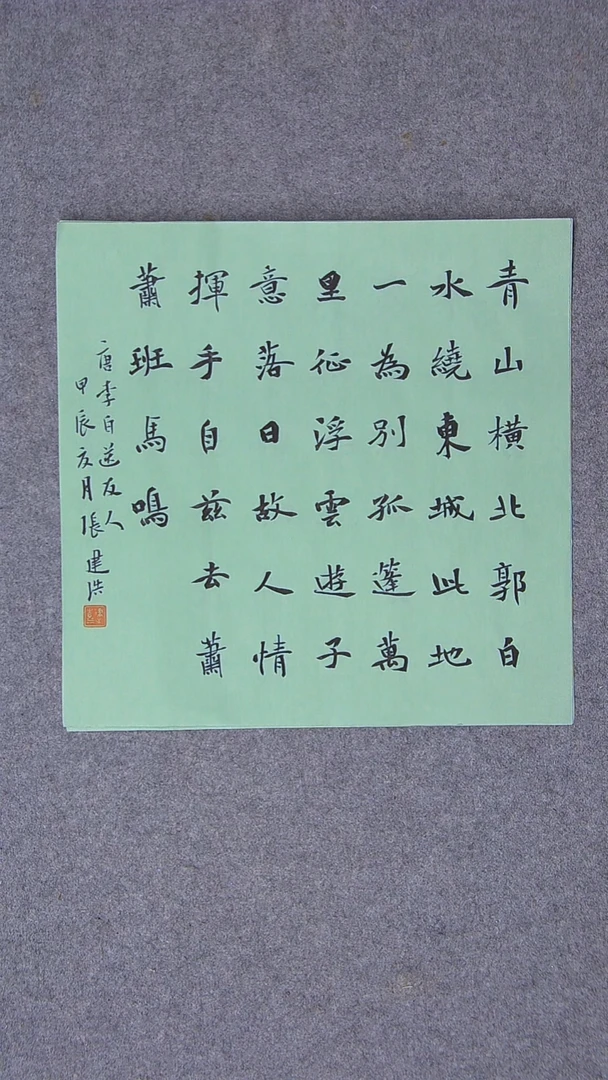 青山橫北郭白
水繞東城此地
一為別孤蓬萬
里征浮雲遊子
意落日故人情
揮手自茲去蕭
蕭班馬鳴
唐李白送友人
甲辰友月張建洪